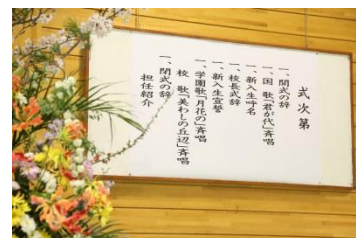 式次第
一、開式の辞
一、国　歌「君が代」斉唱
一、新入生呼名
一、校長式辞
一、新入生宣誓
一、学園歌「月花の」斉唱
校　歌「美わしの丘辺」斉唱
一、閉式の辞
担任紹介